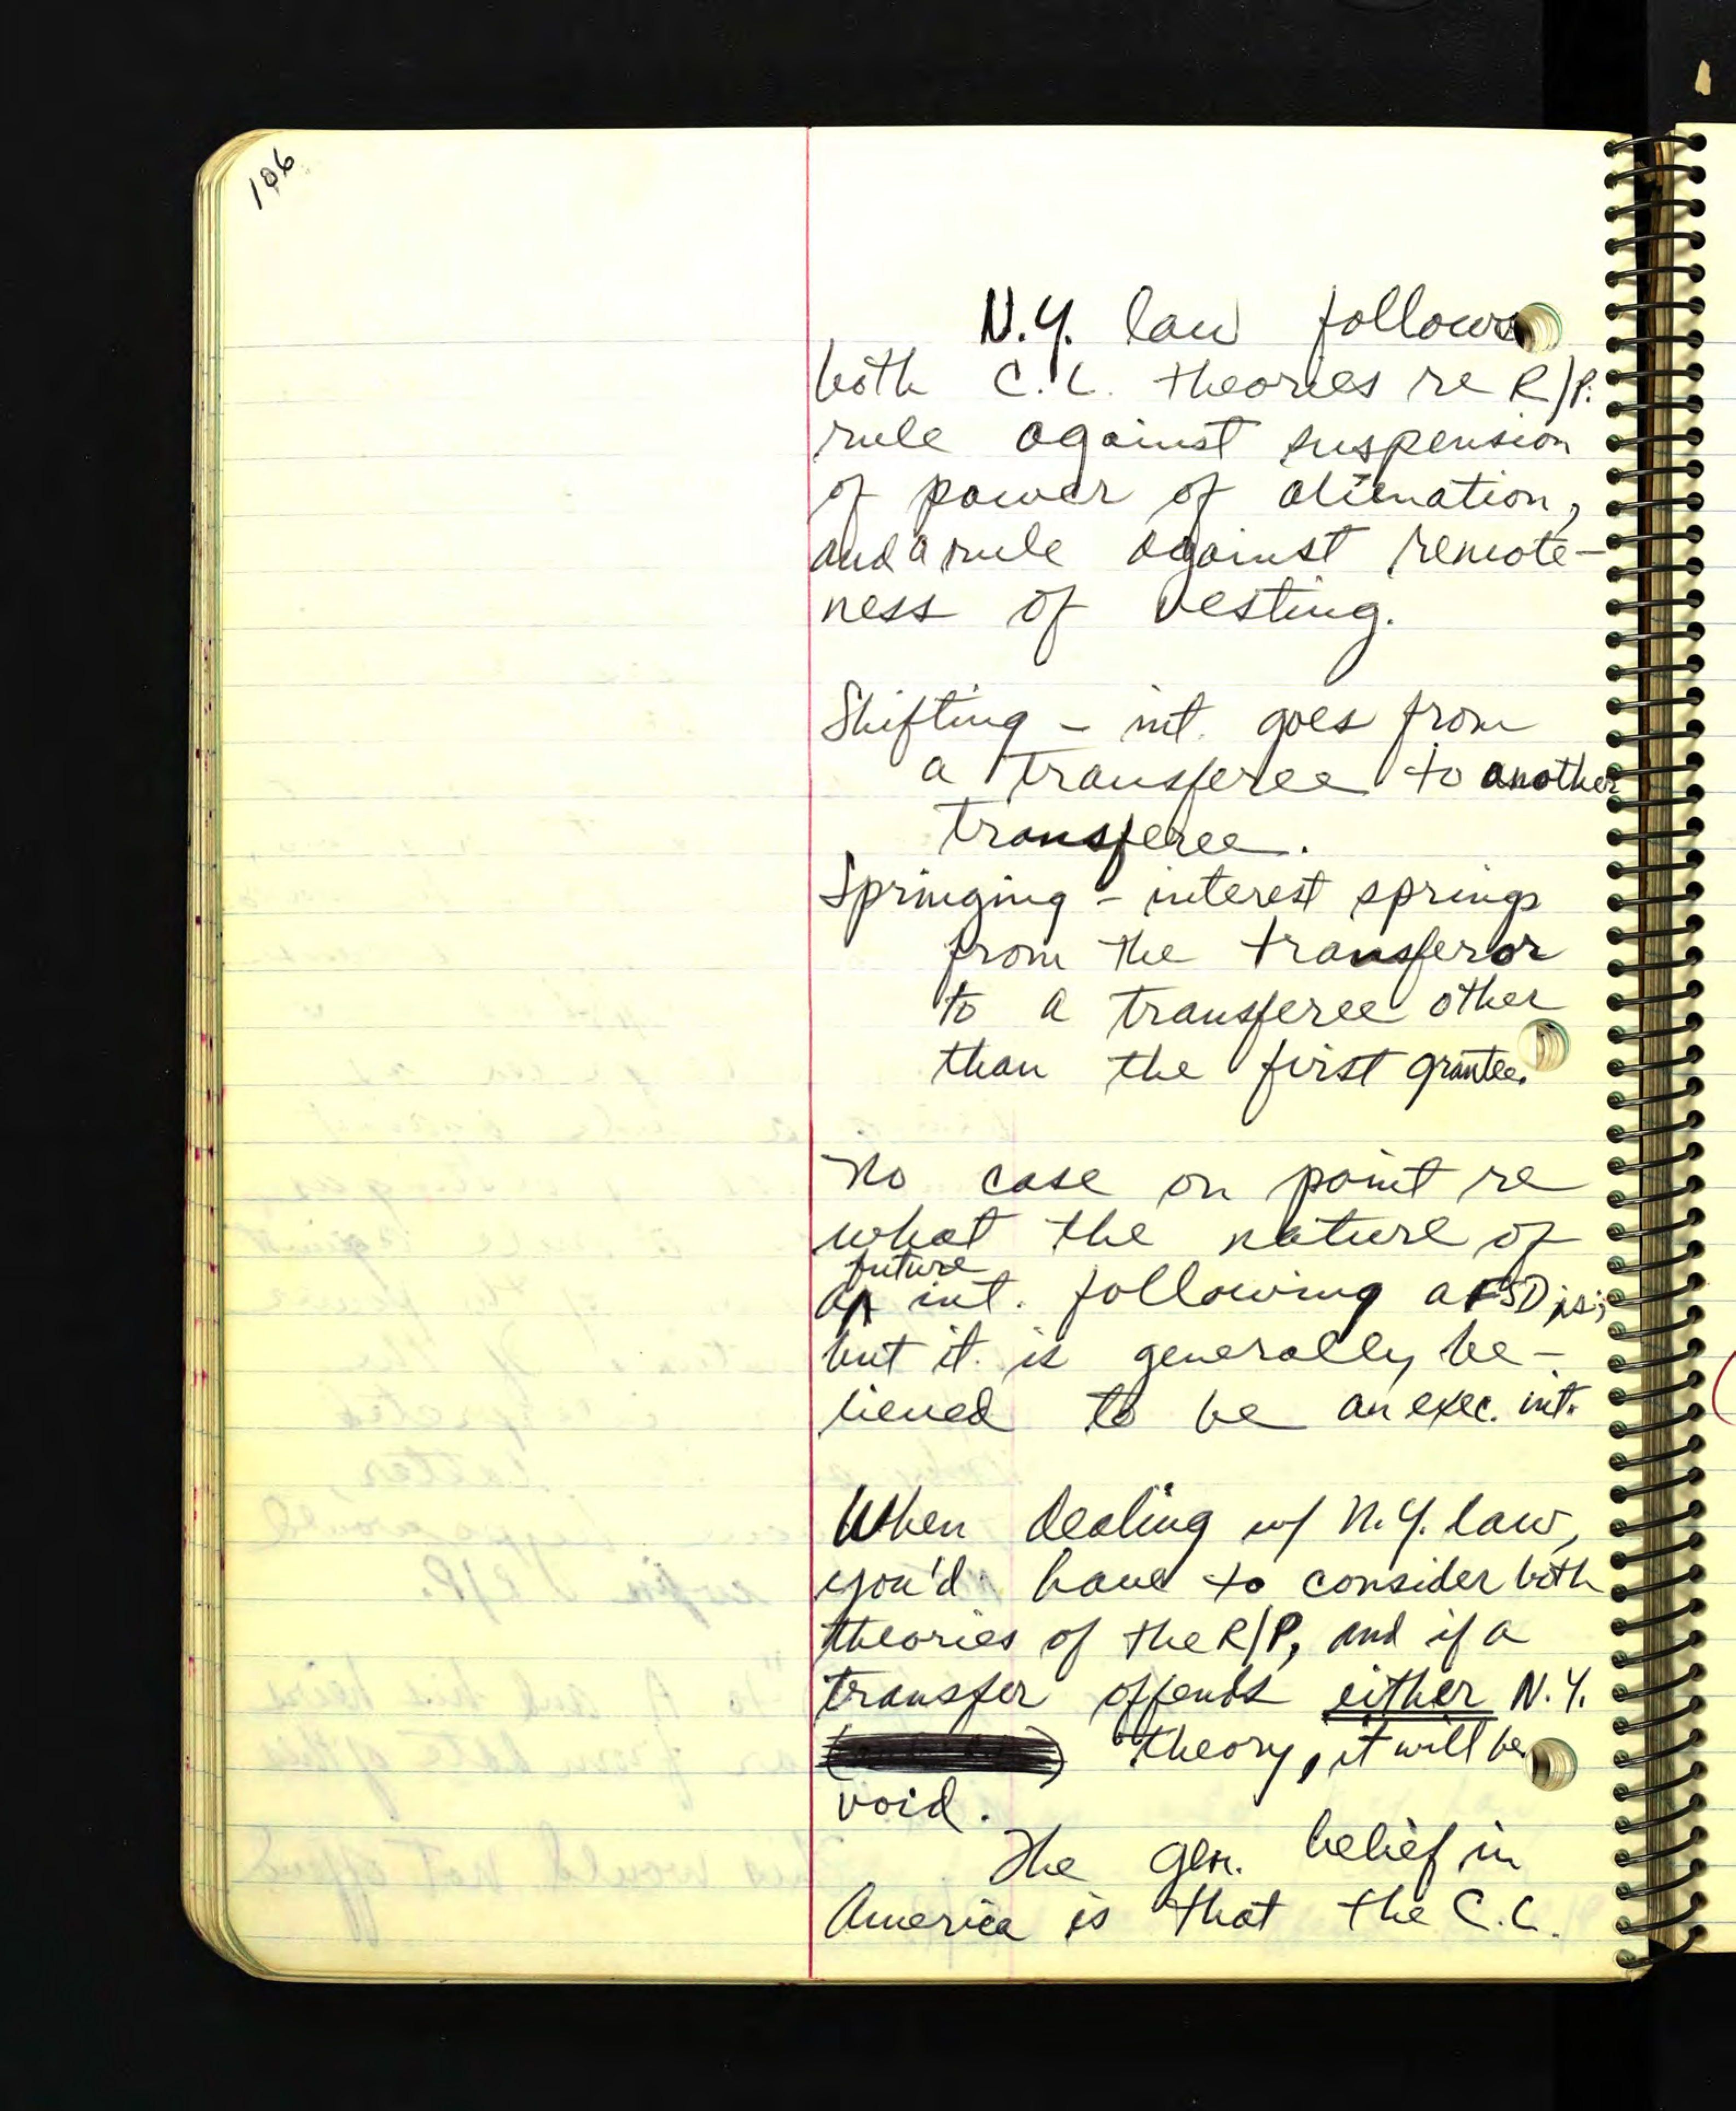 106
N.Y. law follows
both C.L. theories re R/P:
rule against suspension
of power of alienation,
and a rule against remote-
ness of vesting.
Shifting - int. goes from
a transferee to another
transferee.
Springing - interest springs
from the transferor
to a transferee other
than the first grantee.
No case on point re
what the nature of
future
an int. following a FSD is;
but it is generally be-
lieved to be an exec. int.
When dealing w/ N.Y. law,
you'd have to consider both
theories of the R/P, and if a
transfer offends either N.Y.
theory, it will be
void.
The gen. belief in
America is that the C.L.